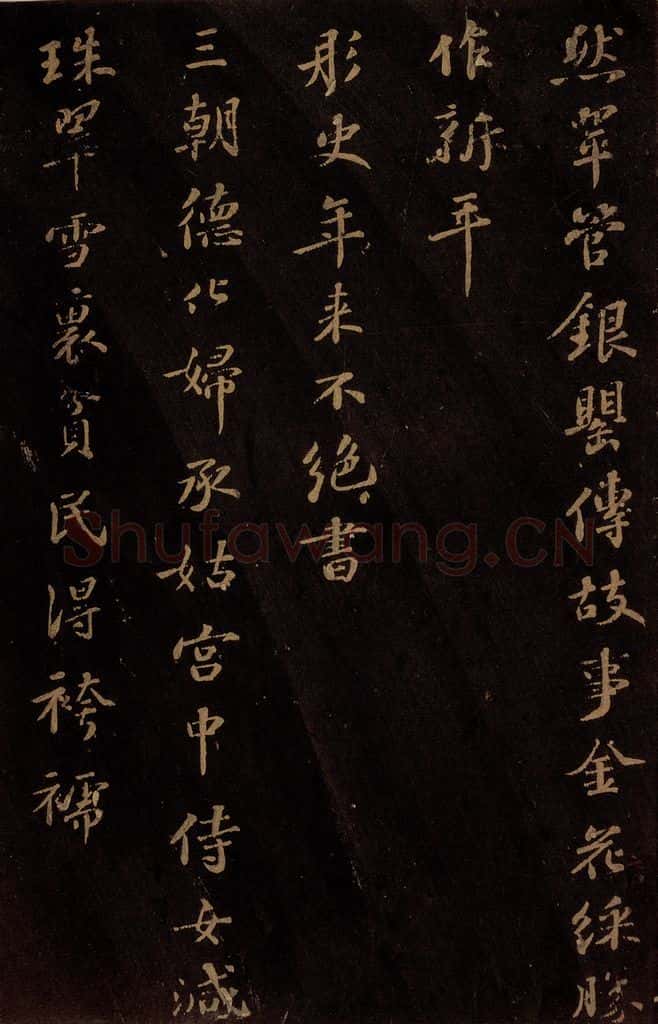 然翠管銀罌傳故事金花綵勝
作新年
彤史年來不絕書
三朝德化婦承姑宮中侍女減
珠翠雪裏貧民得袴襦
Shufawang.CN